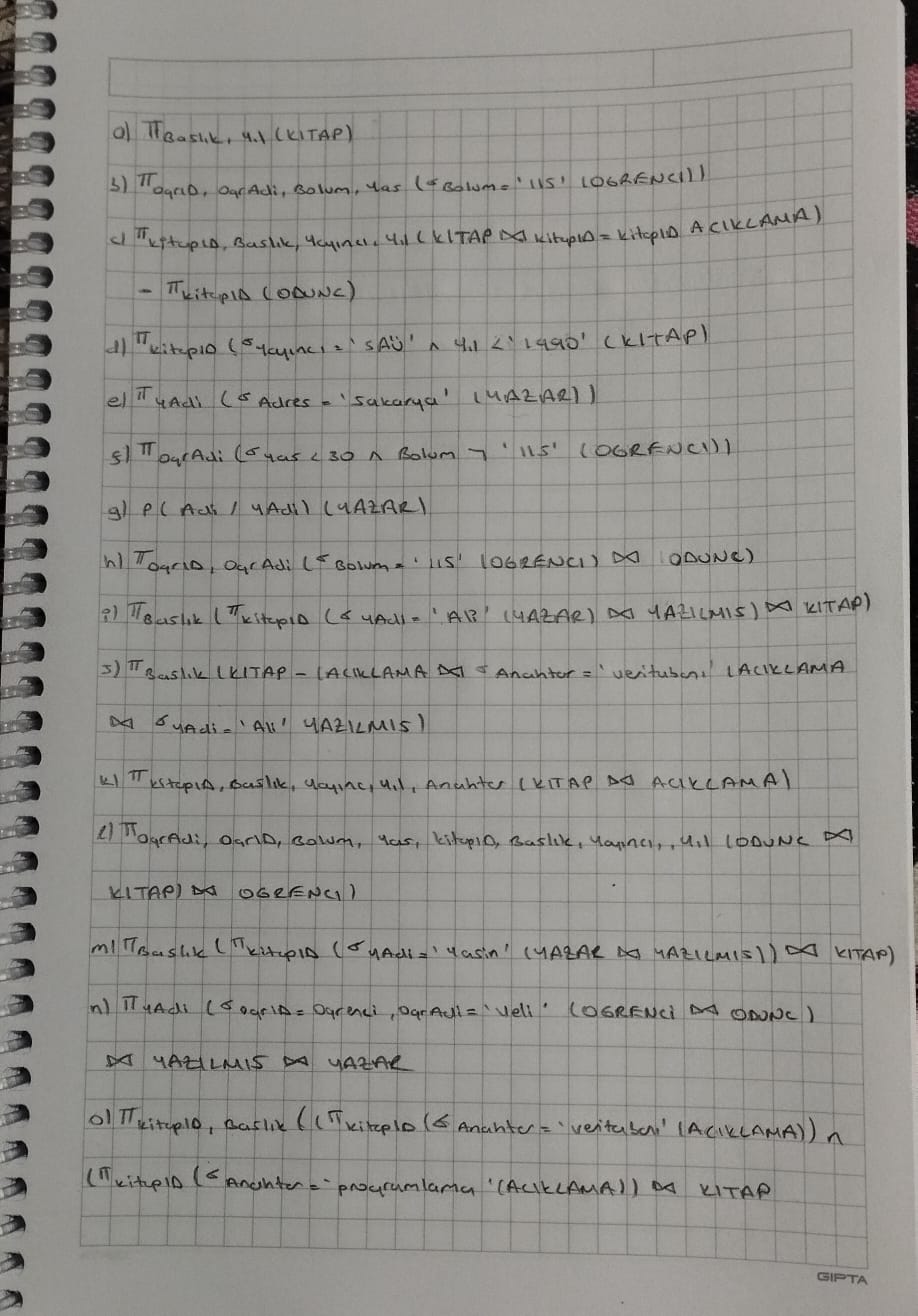 a) π Baslık, Yıl (KITAP)
b) π OgrID, OgrAdi, Bolum, Yas (σ Bolum = '115' (OGRENCI))
c) π KitapID, Baslık, Yayıncı, Yıl (KITAP ⋈ KitapID = KitapID ACIKLAMA)
- π KitapID (ODUNC)
d) π KitapID (σ Yayıncı = 'SAÜ' ∧ Yıl < '1990' (KITAP)
e) π YAdi (σ Adres = 'Sakarya' (YAZAR))
f) π OgrAdi (σ Yas < 30 ∧ Bolum ¬ '115' (OGRENCI))
g) ρ( Adi / YAdi) (YAZAR)
h) π OgrID, OgrAdi (σ Bolum = '115' (OGRENCI) ⋈ ODUNC)
i) π Baslık (π KitapID (σ YAdi = 'Ali' (YAZAR) ⋈ YAZILMIS) ⋈ KITAP)
j) π Baslık (KITAP - (ACIKLAMA ⋈ σ Anahtar = 'veritabanı' (ACIKLAMA
⋈ σ YAdi = 'Ali' YAZILMIS)
k) π KitapID, Baslık, Yayınc, Yıl, Anahtar (KITAP ⋈ ACIKLAMA)
l) π OgrAdi, OgrID, Bolum, Yas, KitapID, Baslık, Yayıncı, , Yıl (ODUNC ⋈
KITAP) ⋈ OGRENCI)
m) π Baslık (π KitapID (σ YAdi = 'Yasin' (YAZAR ⋈ YAZILMIS)) ⋈ KITAP)
n) π YAdi (σ OgrID = Ogrenci , OgrAdi = 'Veli' (OGRENCI ⋈ ODUNC)
⋈ YAZILMIS ⋈ YAZAR
o) π KitapID, Baslık ((π KitapID (σ Anahtar = 'veritabanı' (ACIKLAMA)) ∩
(π KitapID (σ Anahtar = 'programlama '(ACIKLAMA)) ⋈ KITAP
GIPTA